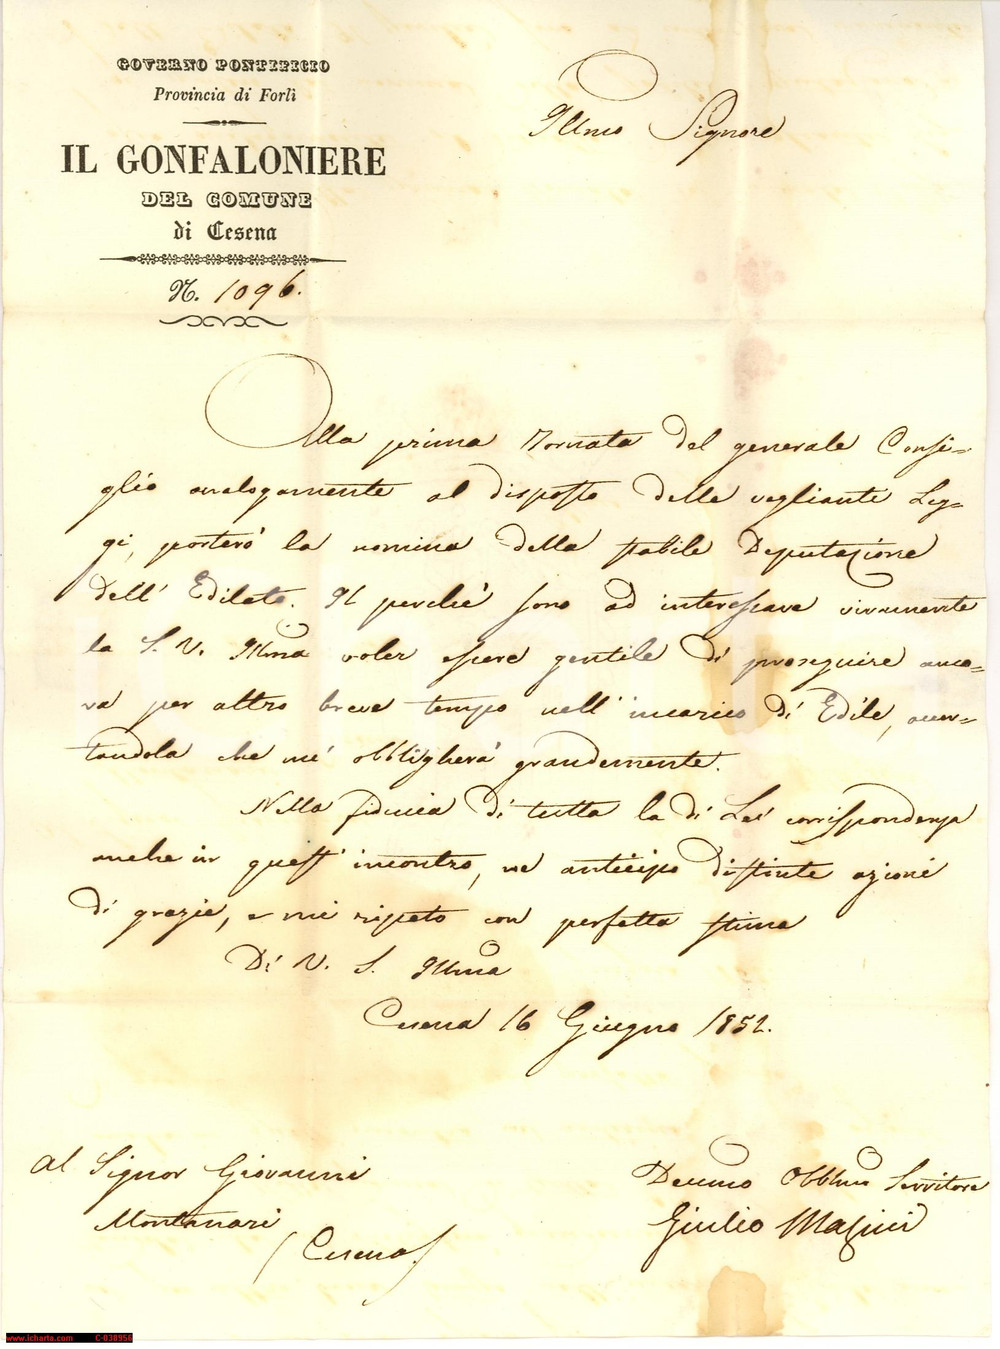 GOVERNO PONTIFICIO
Provincia di Forlì
IL GONFALONIERE
DEL COMUNE
di Cesena
N. 1096.
Illmo Signore
Alla prima Tornata del generale Consi=
glio analogamente al disposto delle vegliante Leg=
gi, porterò la nomina della stabile Deputazione
dell' Edilato. Il perchè sono ad interessare vivamente
la S. V. Illma voler essere gentile di proseguire anco=
ra per altro breve tempo nell' incarico di Edile, accer=
tandola che mi obbligherà grandemente.
Nella fiducia di tutta la di Lei corrispondenza
anche in quest' incontro, ne anticipo distinte azioni
di grazie, e mi ripeto con perfetta stima
Di V. S. Illma
Cesena 16 Giugno 1852.
Al Signor Giovanni
Montanari
(Cesena)
Devmo Obblmo Servitore
Giulio Masini
www.icharta.com C-038956